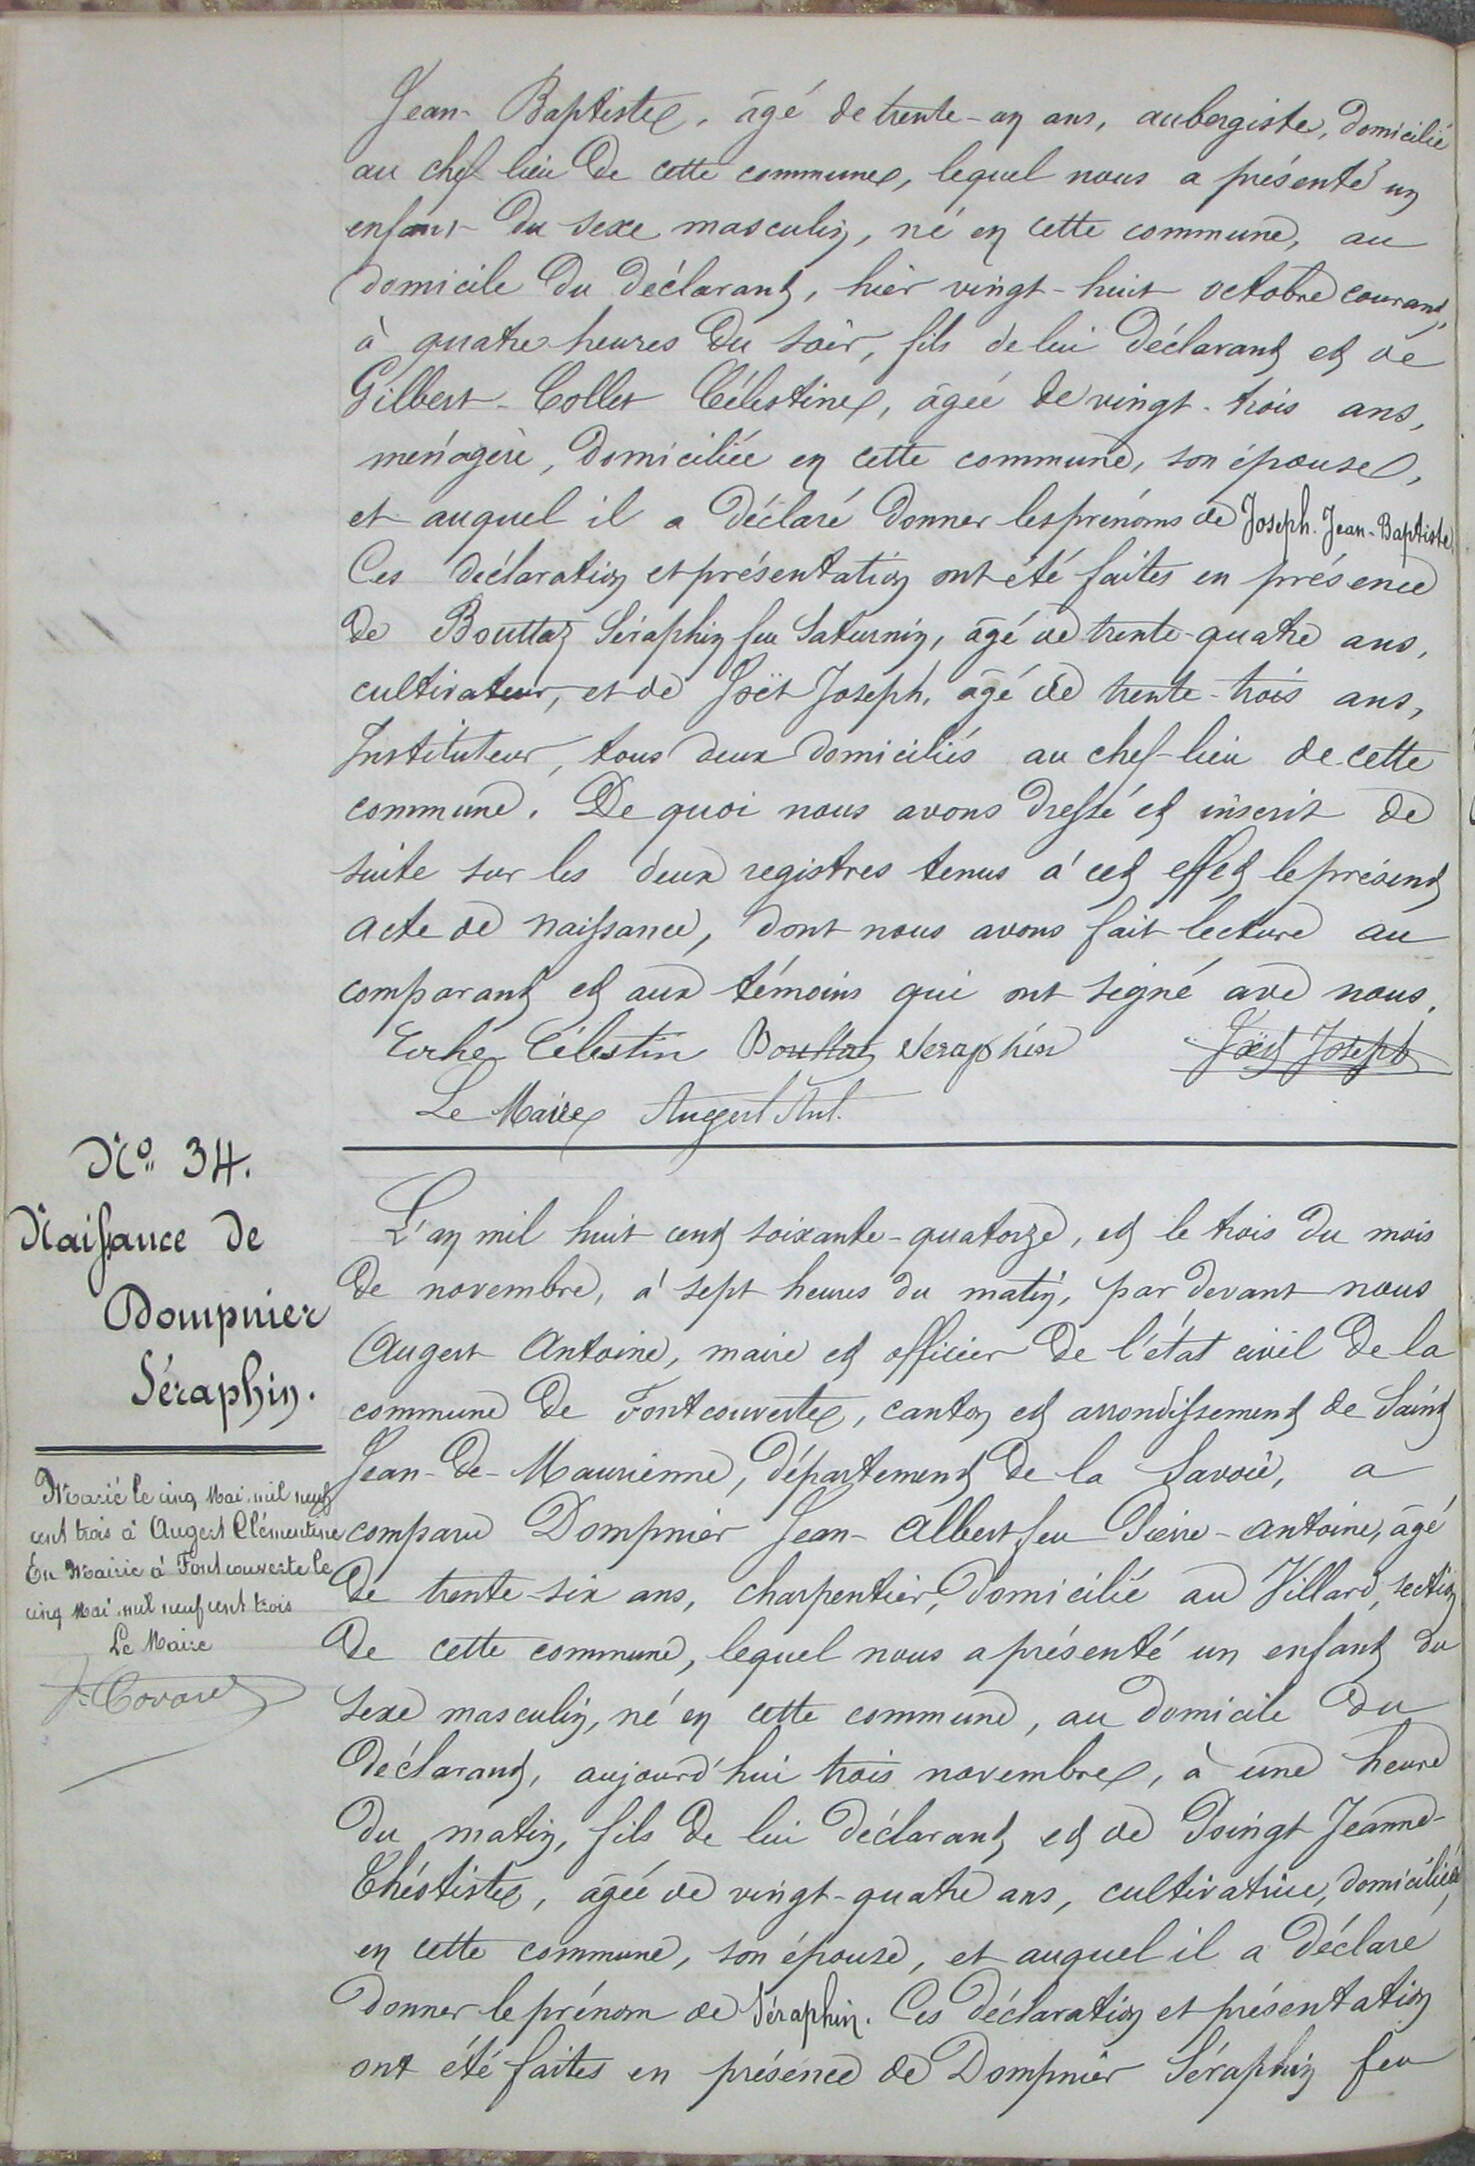 Jean-Baptiste, âgé de trente-un ans, aubergiste, domicilié
au chef lieu de cette commune, lequel nous a présenté un
enfant du sexe masculin, né en cette commune, au
domicile du déclarant, hier vingt-huit octobre courant,
à quatre heures du soir, fils de lui déclarant et de
Gilbert-Collet Célestine, âgée de vingt-trois ans,
ménagère, domiciliée en cette commune, son épouse,
et auquel il a déclaré donner les prénoms de Joseph-Jean-Baptiste.
Ces déclaration et présentation ont été faites en présence
de Bouttaz Séraphin feu Saturnin, âgé de trente-quatre ans,
cultivateur, et de Joët Joseph, âgé de trente-trois ans,
Instituteur, tous deux domiciliés au chef-lieu de cette
commune. De quoi nous avons dressé et inscrit de
suite sur les deux registres tenus à cet effet le présent
acte de naissance, dont nous avons fait lecture au
comparant et aux témoins qui ont signé avec nous.
Célestin Bouttaz Seraphin Joët Joseph
Le Maire Augert Ant.
No. 34.
Naissance de
Dompnier
Séraphin.
Marié le cinq Mai mil neuf
cent trois à Augert Clémentine
En Mairie à Fontcouverte le
cinq Mai mil neuf cent trois
Le Maire
L'an mil huit cent soixante-quatorze, et le trois du mois
de novembre, à sept heures du matin, par devant nous
Augert Antoine, maire et officier de l'état civil de la
commune de Fontcouverte, canton et arrondissement de Saint
Jean-de-Maurienne, département de la Savoie, a
comparu Dompnier Jean-Albert feu Pierre-Antoine, âgé
de trente-six ans, charpentier, domicilié au Villard, section
de cette commune, lequel nous a présenté un enfant du
sexe masculin, né en cette commune, au domicile du
déclarant, aujourd'hui trois novembre, à une heure
du matin, fils de lui déclarant et de Poingt Jeanne-
Théotiste, âgée de vingt-quatre ans, cultivatrice, domiciliée,
en cette commune, son épouse, et auquel il a déclaré
donner le prénom de Séraphin. Ces déclaration et présentation
ont été faites en présence de Dompnier Séraphin feu